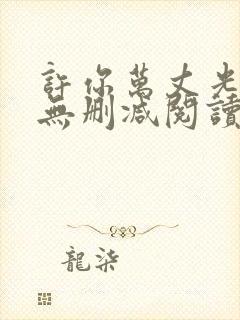 許你萬丈光
無刪减閱讀
龍柒